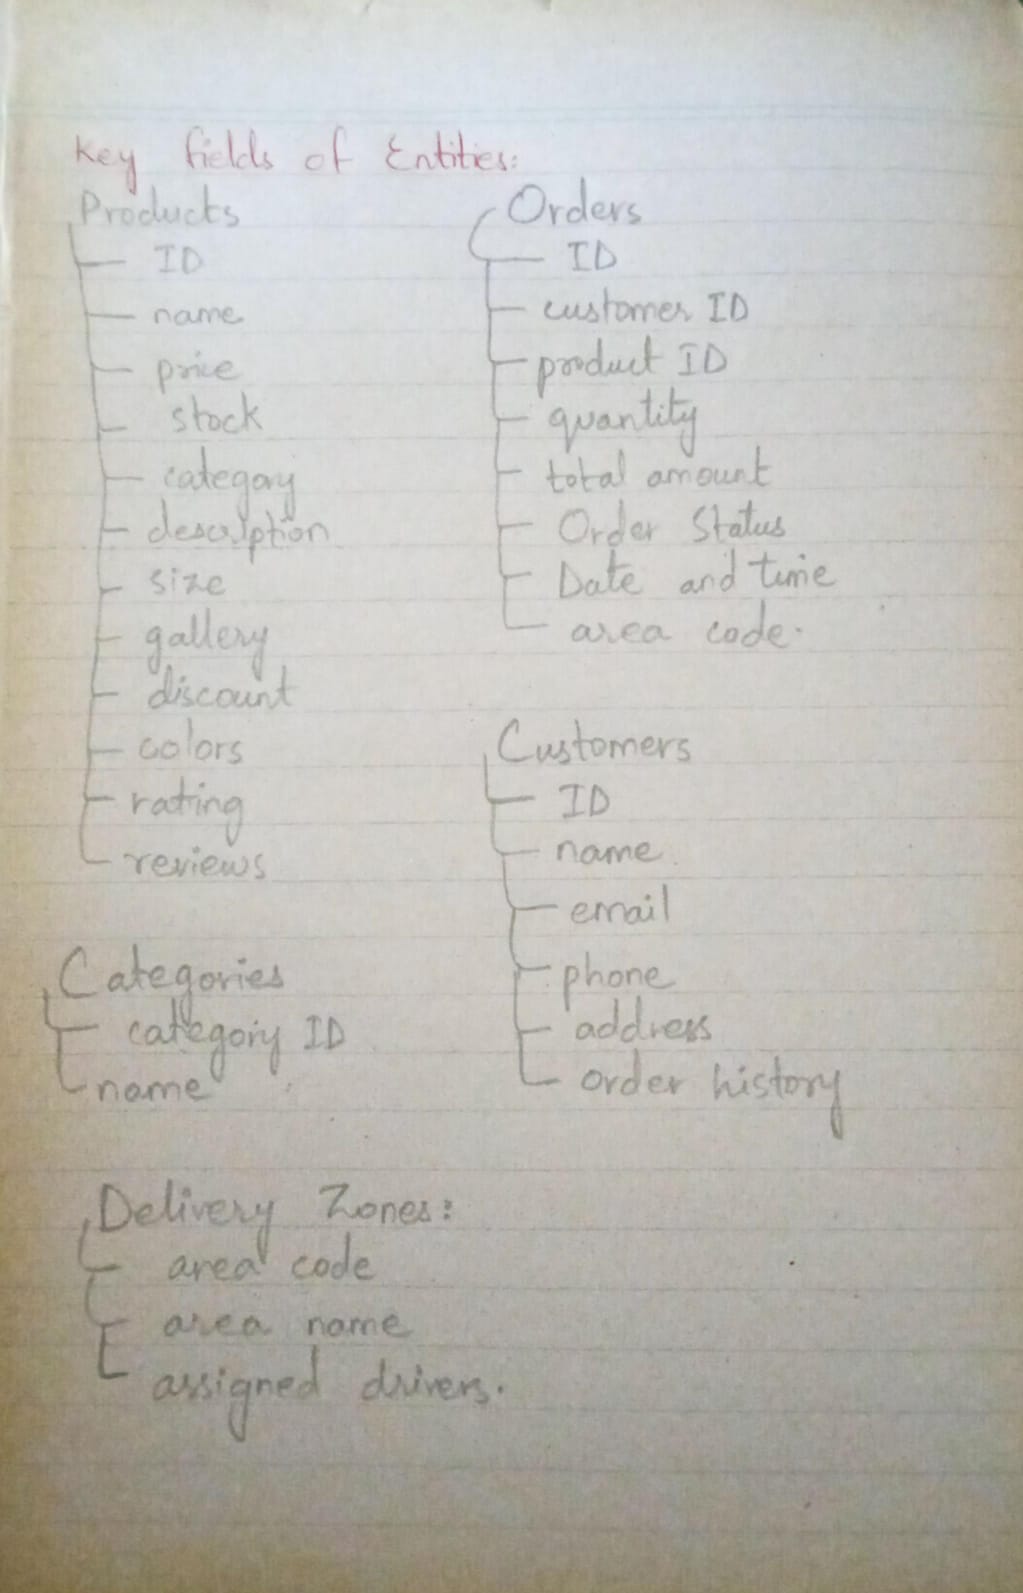 Key fields of Entities:
Products
ID
name
price
stock
category
description
size
gallery
discount
colors
rating
reviews
Categories
category ID
name
Orders
ID
customer ID
product ID
quantity
total amount
Order Status
Date and time
area code.
Customers
ID
name
email
phone
address
order history
Delivery Zones:
area code
area name
assigned drivers.